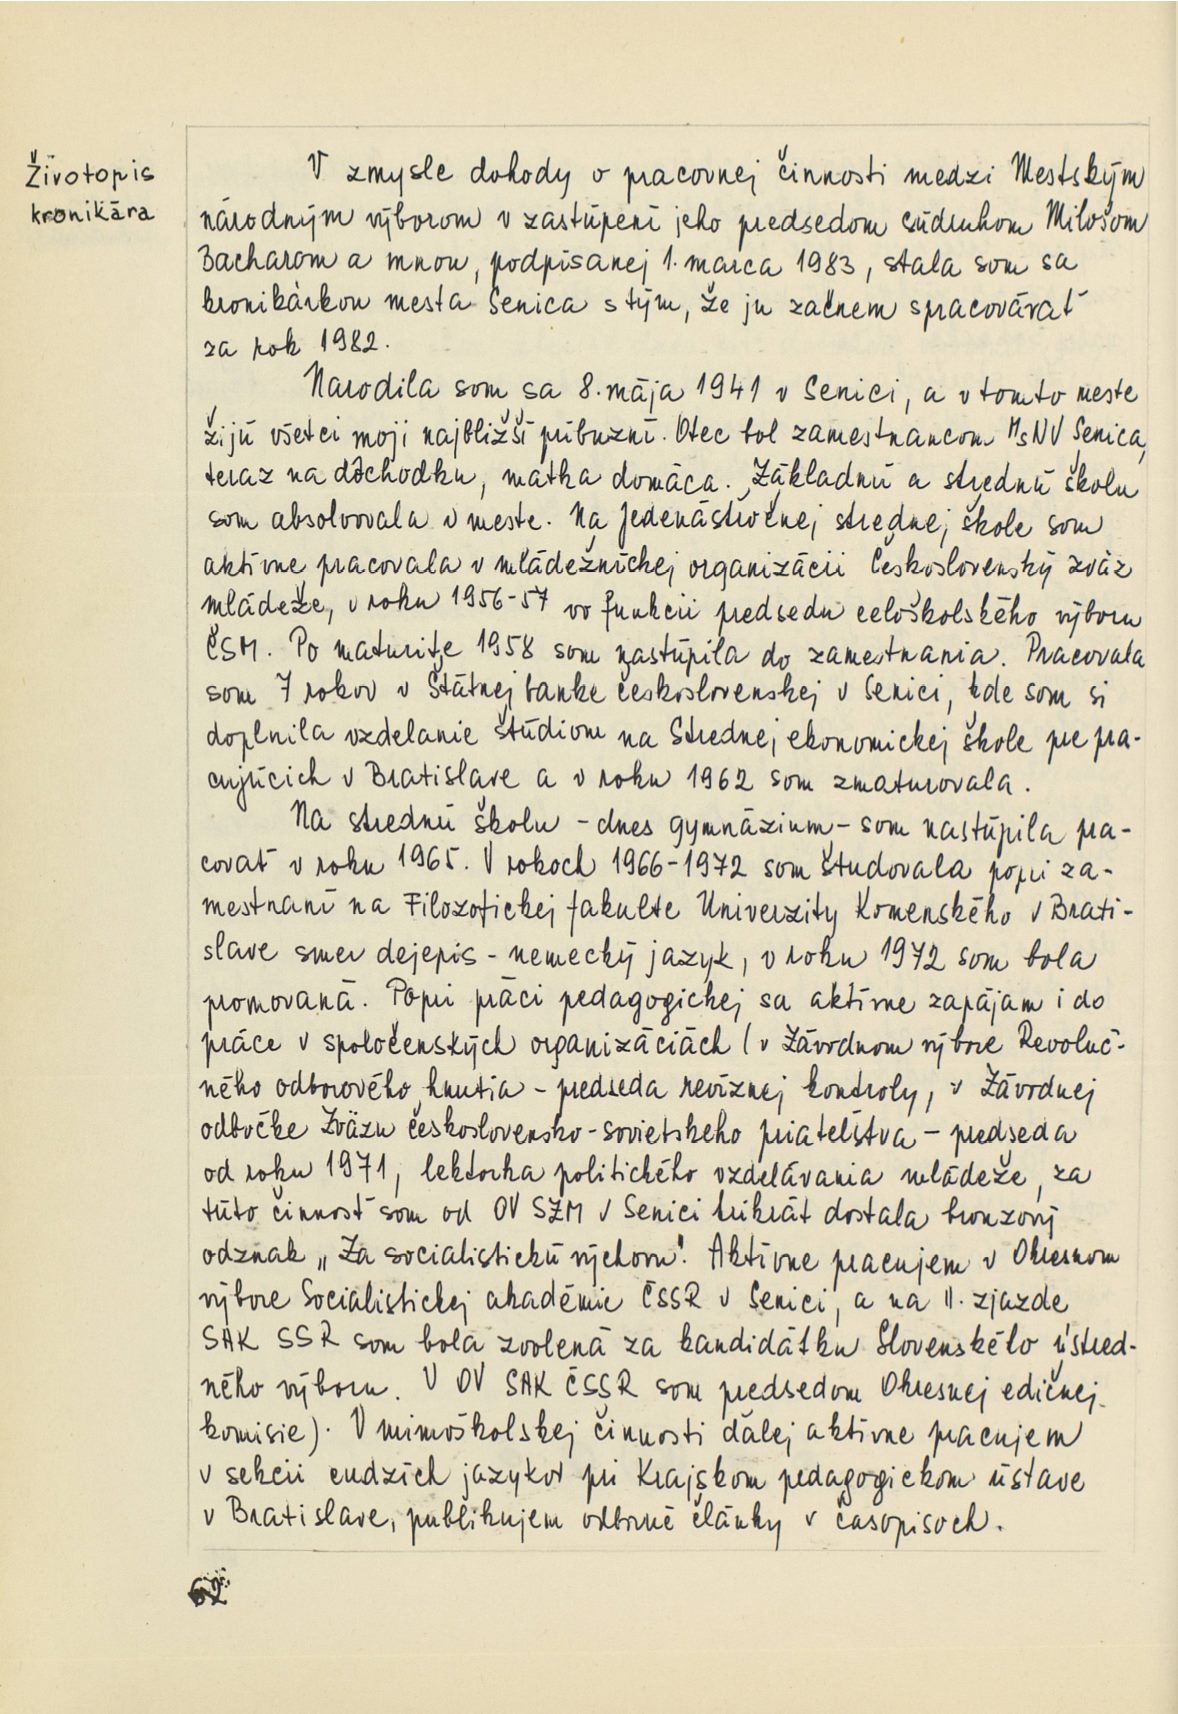 Životopis
kronikára
V zmysle dohody o pracovnej činnosti medzi Mestským
národným výborom v zastúpení jeho predsedom súdruhom Milošom
Bacharom a mnou, podpísanej 1. marca 1983, stala som sa
kronikárkou mesta Senica s tým, že ju začnem spracovávať
za rok 1982.
Narodila som sa 8. mája 1941 v Senici, a v tomto meste
žijú všetci moji najbližší príbuzní. Otec bol zamestnancom MsNV Senica,
teraz na dôchodku, matka domáca. Základnú a strednú školu
som absolvovala v meste. Na Jedenásťročnej strednej škole som
aktívne pracovala v mládežníckej organizácii Československý zväz
mládeže, v roku 1956-57 vo funkcii predsedu celoškolského výboru
ČSM. Po maturite 1958 som nastúpila do zamestnania. Pracovala
som 7 rokov v Štátnej banke československej v Senici, kde som si
doplnila vzdelanie štúdiom na Strednej ekonomickej škole pre pra-
cujúcich v Bratislave a v roku 1962 som zmaturovala.
Na strednú školu - dnes gymnázium - som nastúpila pra-
covať v roku 1965. V rokoch 1966-1972 som študovala popri za-
mestnaní na Filozofickej fakulte Univerzity Komenského v Brati-
slave smer dejepis - nemecký jazyk, v roku 1972 som bola
promovaná. Popri práci pedagogickej sa aktívne zapájam i do
práce v spoločenských organizáciách (v Závodnom výbore Revoluč-
ného odborového hnutia - predseda revíznej kontroly, v Závodnej
odbočke Zväzu československo-sovietskeho priateľstva - predseda
od roku 1971, lektorka politického vzdelávania mládeže, za
túto činnosť som od OV SZM v Senici trikrát dostala bronzový
odznak „Za socialistickú výchovu". Aktívne pracujem v Okresnom
výbore Socialistickej akadémie ČSSR v Senici, a na II. zjazde
SAK SSR som bola zvolená za kandidátku Slovenského ústred-
ného výboru. V OV SAK ČSSR som predsedom Okresnej edičnej
komisie). V mimoškolskej činnosti ďalej aktívne pracujem
v sekcii cudzích jazykov pri Krajskom pedagogickom ústave
v Bratislave, publikujem odborné články v časopisoch.
62